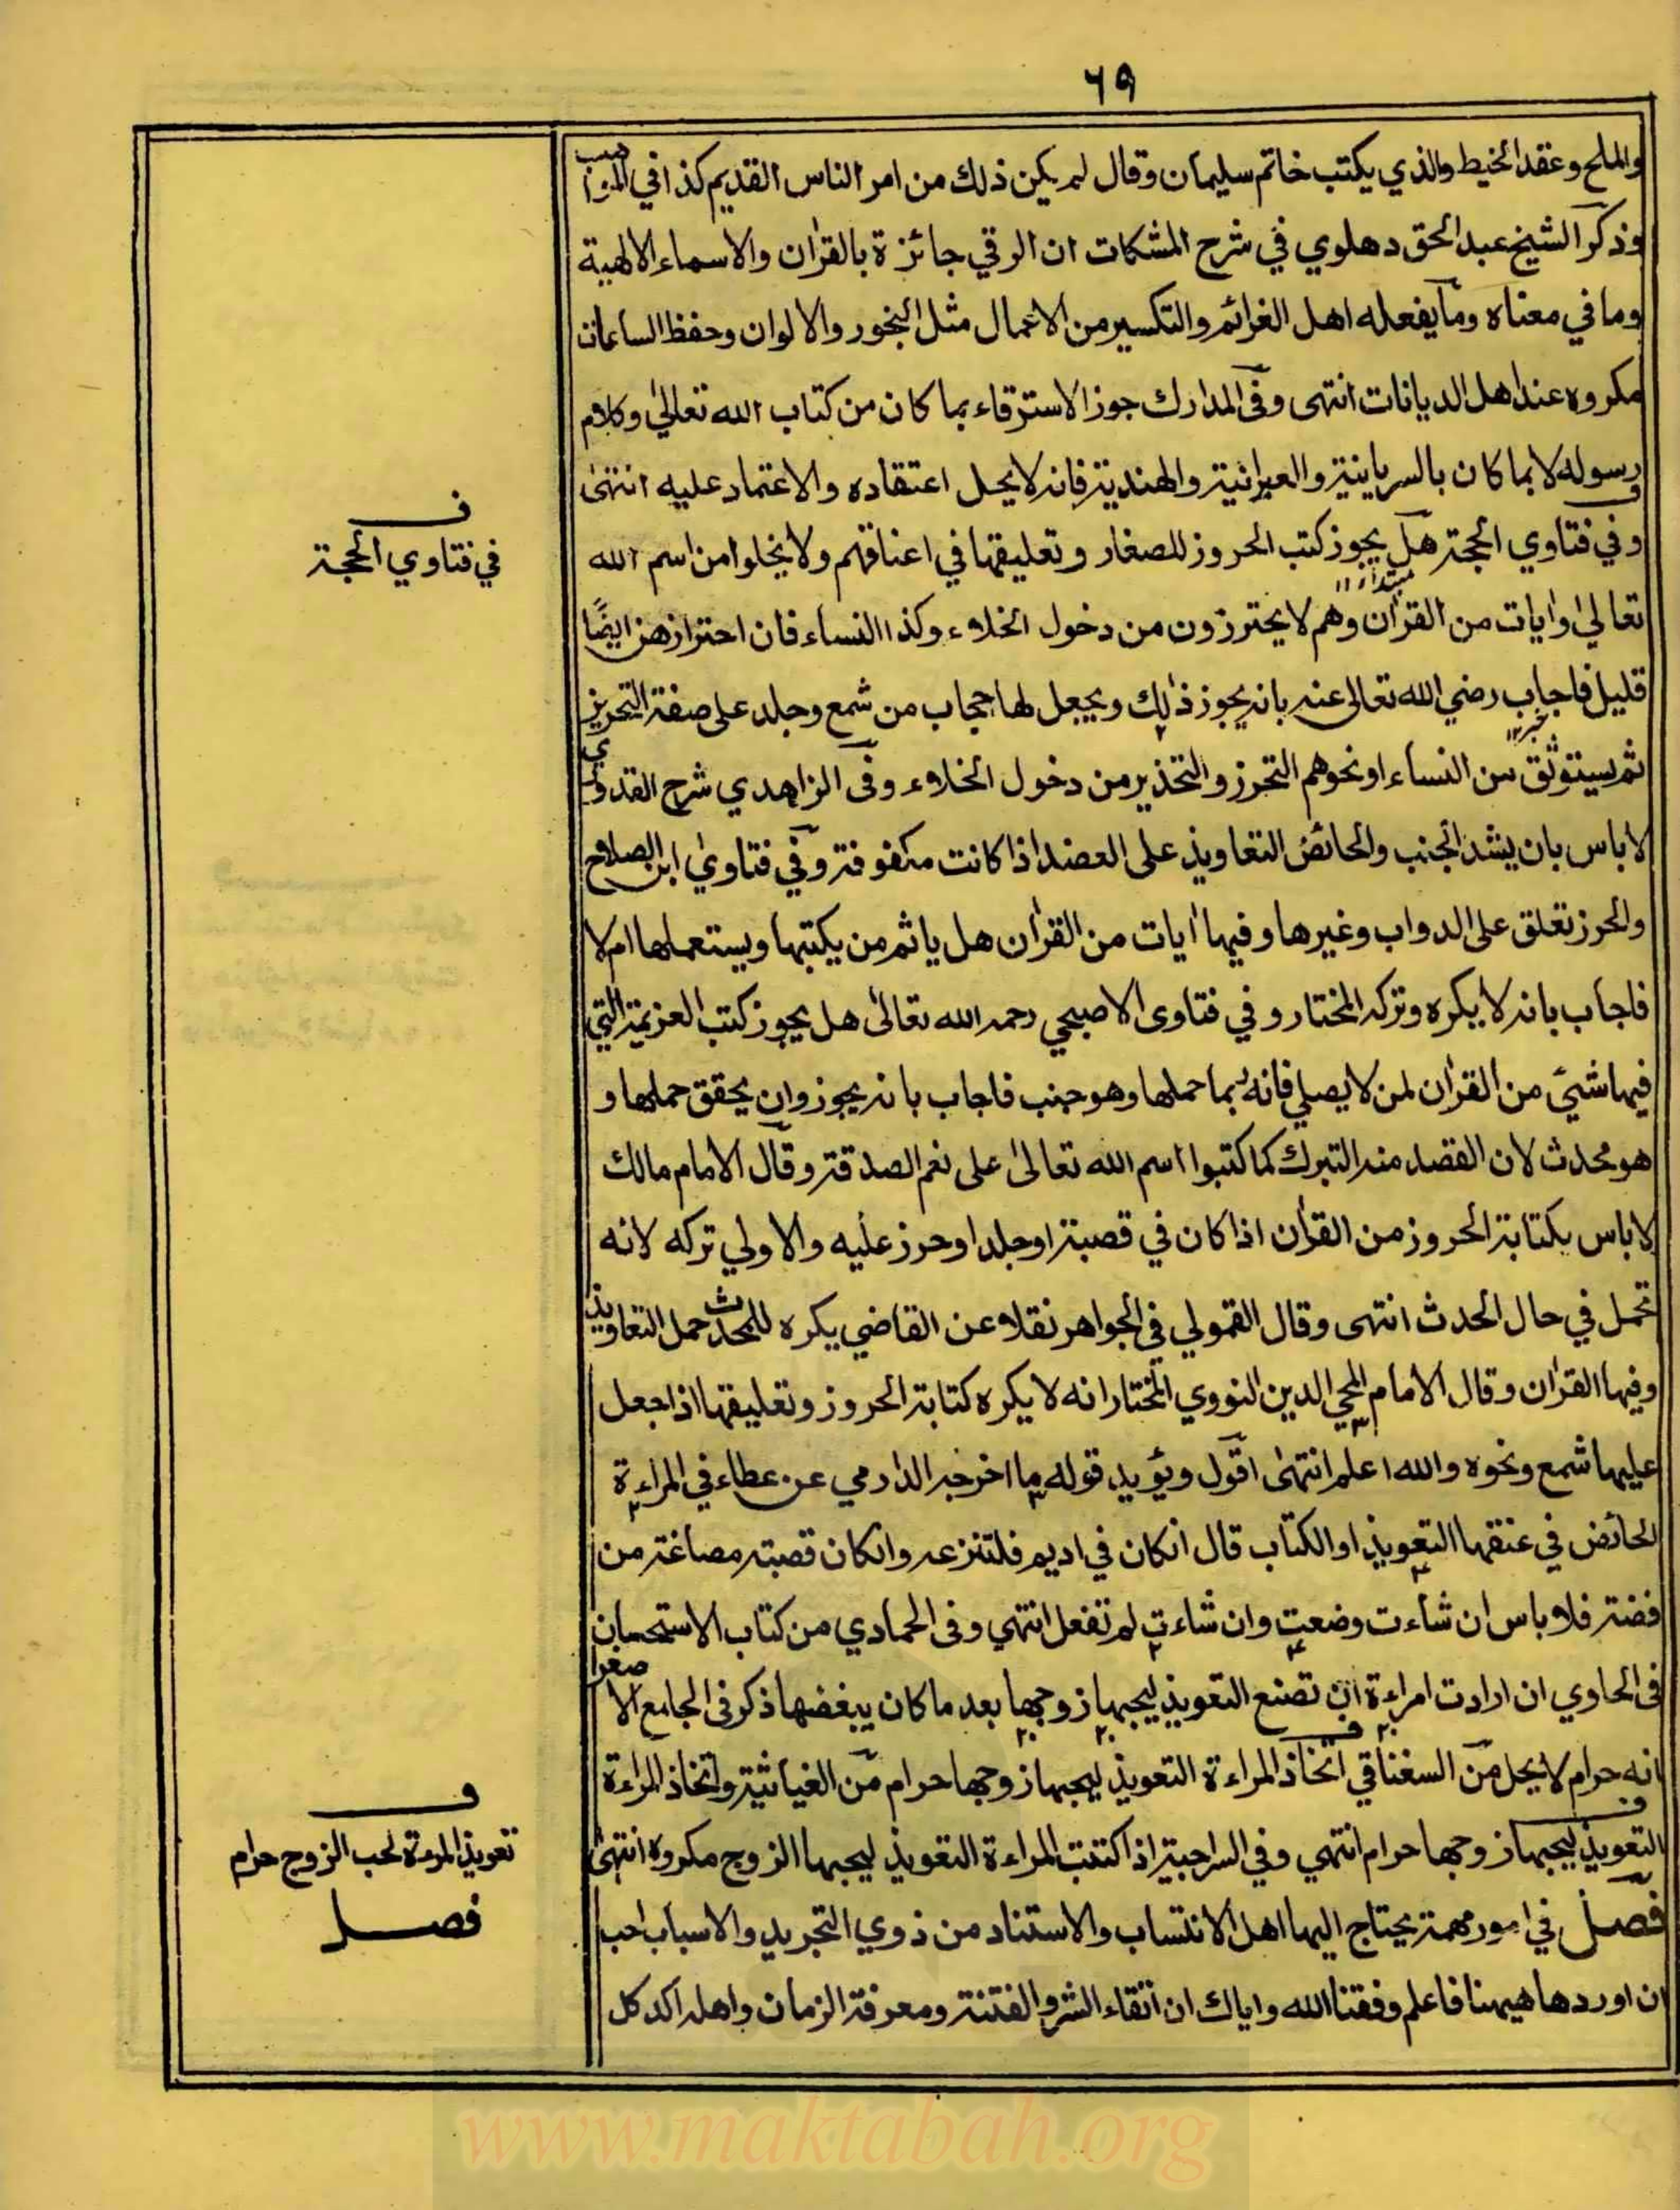 ٦٩
والملح وعقد الخيط والذي يكتب خاتم سليمان وقال لم يكن ذلك من امر الناس القديم كذا في
وذكر الشيخ عبد الحق دهلوي في شرح المشكات ان الرقي جائزة بالقرأن والاسماء الالهية
وما في معناه وما يفعله اهل الغرائم والتكسير من الاعمال مثل البخور والالوان وحفظ الساعات
مكروه عند اهل الديانات انتهى وفى المدارك جوز الاسترقاء بما كان من كتاب الله تعالىٰ وكلام
رسوله لا بما كان بالسريانية والعبرانية والهندية فانه لا يحل اعتقاده والاعتماد عليه انتهىٰ
وفي فتاوي الحجة هل يجوز كتب الحروز للصغار وتعليقها في اعناقهم ولا يخلوا من اسم الله
تعالىٰ اوايات من القرأن وهم لا يحترزون من دخول الخلاء وكذا النساء فان احترازهن ايضًا
قليل فاجاب رضي الله تعالى عنه بانه يجوز ذلك ويجعل لها حجاب من شمع وجلد على صفة التحريز
ثم يستوثق من النساء اونحوهم التحرز والتحذير من دخول الخلاء وفى الزاهدي شرح القدوري
لا باس بان يشد الجنب والحائض التعاويذ على العضد اذا كانت مكفوفة وفي فتاوي ابن الصلاح
والحرز تعلق على الدواب وغيرها وفيها أيات من القرأن هل ياثم من يكتبها ويستعملها ام لا
فاجاب بانه لا يكره وتركه المختار وفي فتاوى الاصبحي رحمه الله تعالىٰ هل يجوز كتب العزيمة التي
فيها شيئ من القرأن لمن لا يصلي فانه ربما حملها وهو جنب فاجاب بانه يجوز وان يحقق حملها و
هو محدث لان القصد منه التبرك كما كتبوا اسم الله تعالىٰ على نعم الصدقة وقال الامام مالك
لا باس بكتابة الحروز من القرأن اذا كان في قصبة اوجلد اوحرز عليه والاولي تركه لانه
تحمل في حال الحدث انتهى وقال القمولي في الجواهر نقلا عن القاضي يكره للمحدث حمل التعاويذ
وفيها القرأن وقال الامام المحي الدين النووي المختار انه لا يكره كتابة الحروز وتعليقها اذا جعل
عليها شمع ونحوه والله اعلم انتهىٰ اقول ويؤيد قوله ما اخرجه الدارمي عن عطاء في المراءة
الحائض في عنقها التعويذ او الكتاب قال انكان في اديم فلتنزعه وانكان قصبة مصاغة من
فضة فلا باس ان شاءت وضعت وان شاءت لم تفعل انتهي وفى الحمادي من كتاب الاستحسان
فى الحاوي ان ارادت امراءة ان تصنع التعويذ ليحبها زوجها بعد ما كان يبغضها ذكر فى الجامع الاصغر
انه حرام لا يحل من السغناقي اتخاذ المراءة التعويذ ليحبها زوجها حرام من الغياثية واتخاذ المراءة
التعويذ ليحبها زوجها حرام انتهي وفي السراجية اذا كتبت المراءة التعويذ ليحبها الزوج مكروه انتهىٰ
فصل في امور مهمة يحتاج اليها اهل الانتساب والاستناد من ذوي التجريد والاسباب احب
ان اوردها هيهنا فاعلم وفقنا الله واياك ان اتقاء الشر والفتنة ومعرفة الزمان واهله اكد كل
ف
في فتاوي الحجة
ف
تعويذ المرءة لحب الزوج حرام
فصل
www.maktabah.org